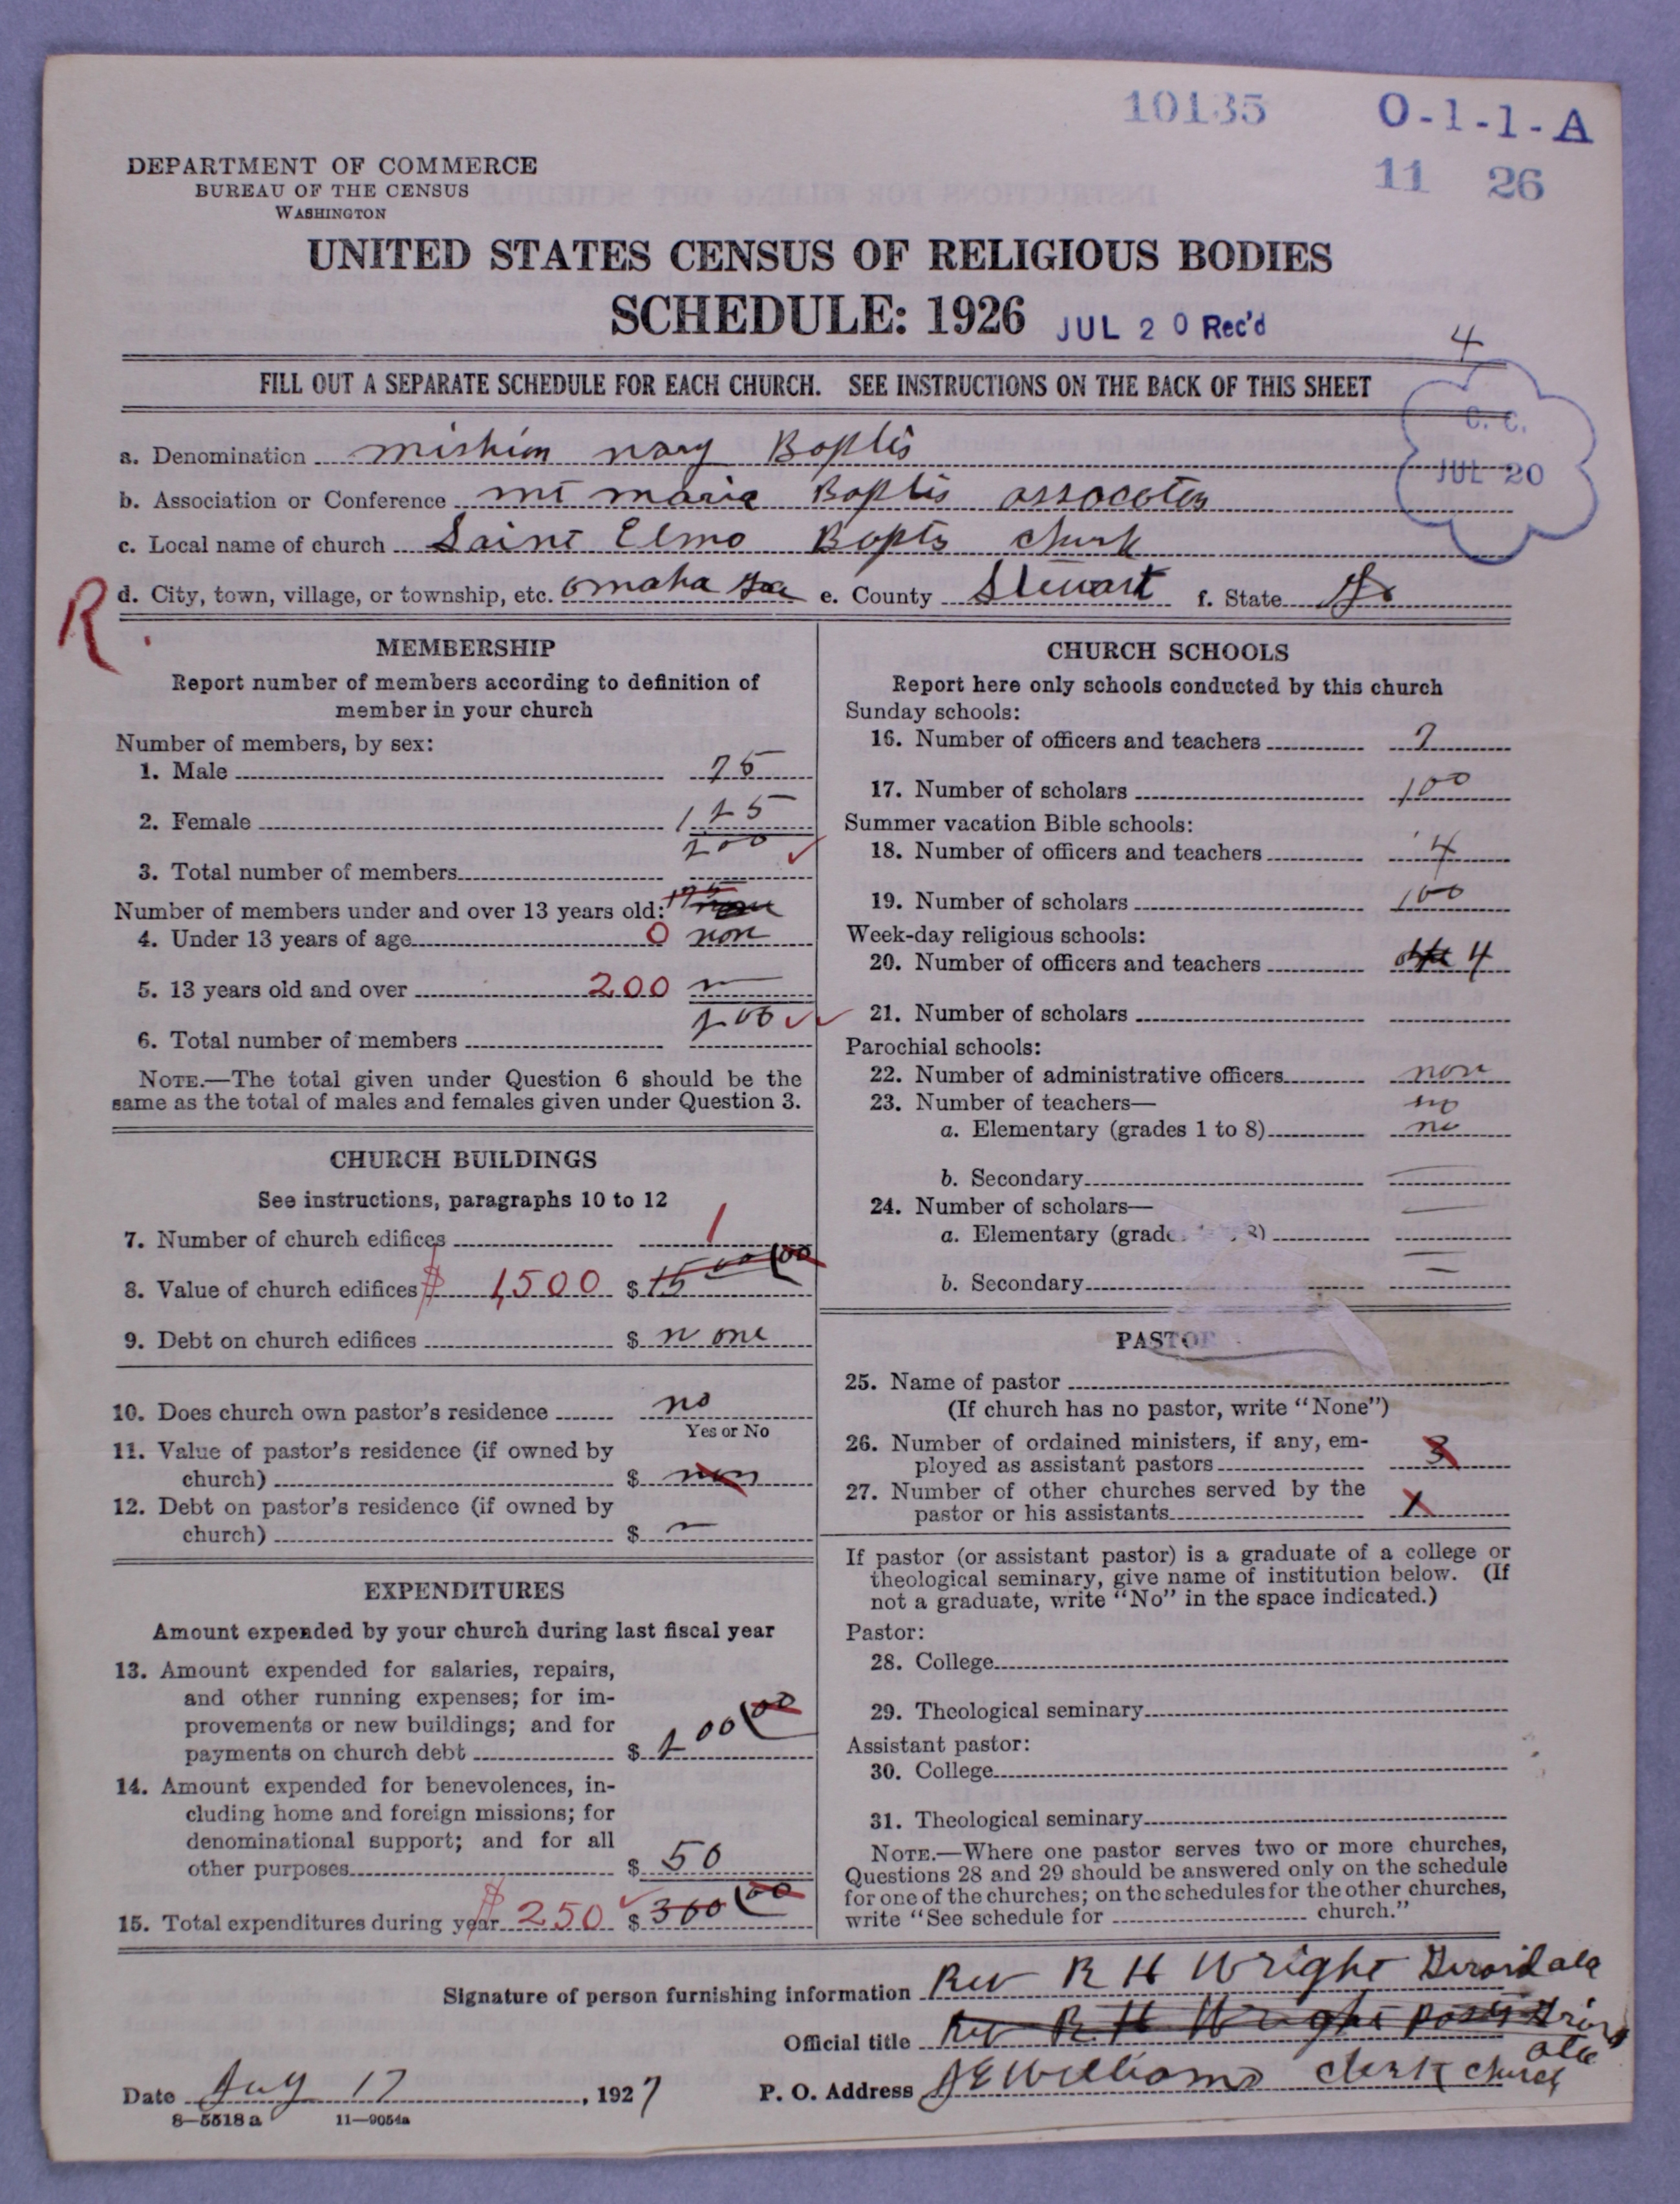 10135 O-1-1-A
11 26
DEPARTMENT OF COMMERCE
BUREAU OF THE CENSUS
WASHINGTON
UNITED STATES CENSUS OF RELIGIOUS BODIES
SCHEDULE: 1926 JUL 20 Rec'd
4
FILL OUT A SEPARATE SCHEDULE FOR EACH CHURCH. SEE INSTRUCTIONS ON THE BACK OF THIS SHEET
C. C.
JUL 20
a. Denomination mishin nary Boptis
b. Association or Conference mt maria Boptis assocotion
c. Local name of church Saint Elmo Bopts church
d. City, town, village, or township, etc. omaha Ga e. County Stewart f. State Ga
R.
MEMBERSHIP
Report number of members according to definition of
member in your church
Number of members, by sex:
1. Male 75
2. Female 125
3. Total number of members 200
Number of members under and over 13 years old: 175
4. Under 13 years of age 0 non
5. 13 years old and over 200
6. Total number of members 200
NOTE.—The total given under Question 6 should be the
same as the total of males and females given under Question 3.
CHURCH BUILDINGS
See instructions, paragraphs 10 to 12
7. Number of church edifices 1
8. Value of church edifices $ 1,500 $ 1500 00
9. Debt on church edifices $ none
10. Does church own pastor's residence no
Yes or No
11. Value of pastor's residence (if owned by
church) $ non
12. Debt on pastor's residence (if owned by
church) $ —
EXPENDITURES
Amount expended by your church during last fiscal year
13. Amount expended for salaries, repairs,
and other running expenses; for im-
provements or new buildings; and for
payments on church debt $ 200 00
14. Amount expended for benevolences, in-
cluding home and foreign missions; for
denominational support; and for all
other purposes $ 50
15. Total expenditures during year $ 250 $ 300 00
CHURCH SCHOOLS
Report here only schools conducted by this church
Sunday schools:
16. Number of officers and teachers 7
17. Number of scholars 100
Summer vacation Bible schools:
18. Number of officers and teachers 4
19. Number of scholars 100
Week-day religious schools:
20. Number of officers and teachers 4
21. Number of scholars
Parochial schools:
22. Number of administrative officers non
23. Number of teachers— no
a. Elementary (grades 1 to 8) no
b. Secondary —
24. Number of scholars— —
a. Elementary (grade 8)
b. Secondary —
PASTOR
25. Name of pastor
(If church has no pastor, write "None")
26. Number of ordained ministers, if any, em-
ployed as assistant pastors 3
27. Number of other churches served by the
pastor or his assistants 1
If pastor (or assistant pastor) is a graduate of a college or
theological seminary, give name of institution below. (If
not a graduate, write "No" in the space indicated.)
Pastor:
28. College
29. Theological seminary
Assistant pastor:
30. College
31. Theological seminary
NOTE.—Where one pastor serves two or more churches,
Questions 28 and 29 should be answered only on the schedule
for one of the churches; on the schedules for the other churches,
write "See schedule for church."
Signature of person furnishing information Rev R H Wright ala
Official title Rev R. H. Wright ala
Date July 17, 1927 P. O. Address J E Williams clerk church
8—5518a 11—9054a